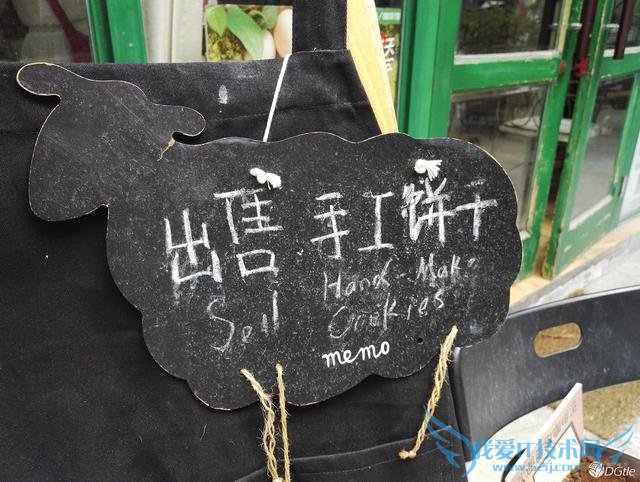 出售 手工饼干
Sell Hand-Make
Cookies
memo
我爱IT技术网
www.52ij.com
DGtle